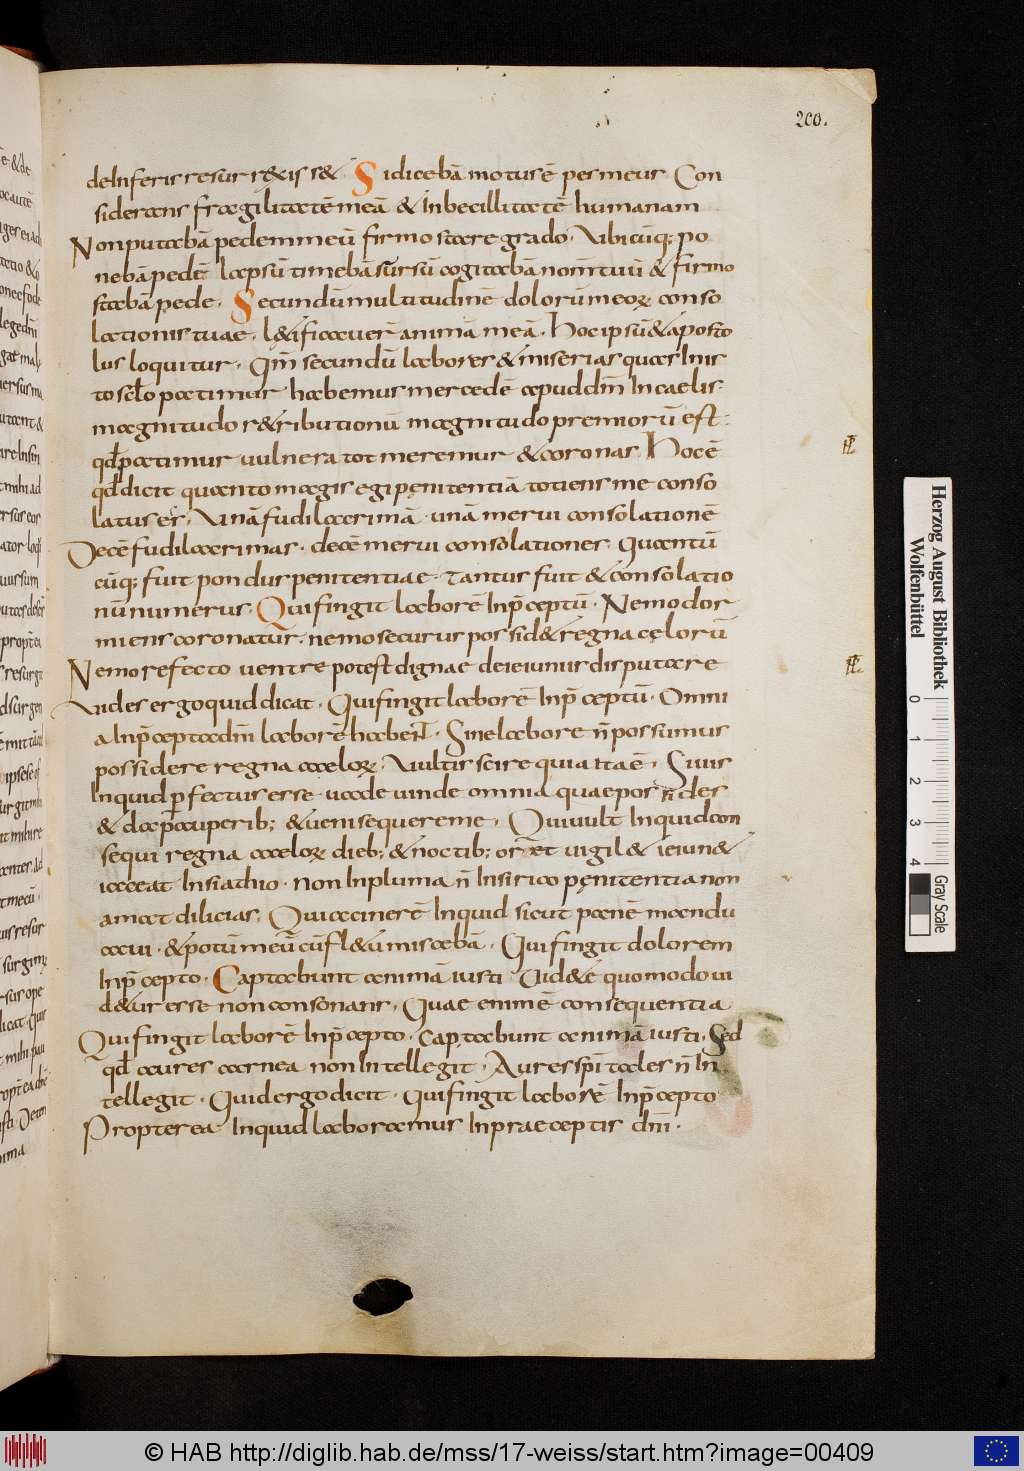 200.
de Inferis resurrexisset. Si dicebā motus ē pes meus Con
siderans fragilitatē meā & Inbecillitatē humanam
Non putabā pedem meū firmo stare gradu. Ubicūq; po
nebā pedē lapsū timebā sursū cogitabā nom̄ tuū & firmo
stabā pede. Secundū multitudinē dolorū meoꝝ conso
lationis tuae. l&ificauer̄ animā meā. Hoc ipsū & aposto
lus loquitur. Qm̄ secundū labores & miserias quas In is
to sc̄lo patimur habemus mercedē apud dm̄ In caelis.
magnitudo r&ributionū magnitudo premiorū est.
qd̄ patimur uulnera tot meremur & coronas. Hoc ē
qd̄ dicit quanto magis egi pęnitentiā totiens me conso
latus es. Unā fudi lacrimā. unā merui consolationē
Decē fudi lacrimas. decē merui consolationes. Quantū
cūq; fuit pondus penitentiae. Tantus fuit & consolatio
nū numerus. Qui fingit laborē In p̄ceptū. Nemo dor
miens coronatur. nemo securus possid& regna cęlorū
Nemo refecto uentre potest dignae de ieiuniis disputare
Uides ergo quid dicat. Qui fingit laborē In p̄ceptū. Omni
a In p̄cepta dm̄ laborē habent. Sine labore n̄ possumus
possidere regna caeloꝝ. Uultis scire quia ita ē. Si uis
Inquid p̄fectus esse. uade uende omnia quae possides
& da pauperib; & ueni sequere me. Qui uult Inquid con
sequi regna caeloꝝ dieb; & noctib; or& uigil& ieiun&
iaceat In siathio. non In pluma n̄ In sirico pęnitentia non
amat dilicias. Quia cinerē Inquid sicut panē mandu
caui. & potū meū cū fl&u miscebā. Qui fingit dolorem
In p̄cepto. Captabunt animā iusti. Uid&e quomodo ui
d&ur esse non consonans. Quae enim ē consequentia
Qui fingit laborē In p̄cepto. Captabunt animā iusti. Sed
qd̄ aures carnea non Intellegit. Aures sp̄i tales n̄ In
tellegit. Quid ergo dicit. Qui fingit laborē In p̄cepto
Propterea Inquid laboramus In praeceptis dn̄i.
Herzog August Bibliothek
Wolfenbüttel
0 1 2 3 4
Gray Scale
© HAB http://diglib.hab.de/mss/17-weiss/start.htm?image=00409